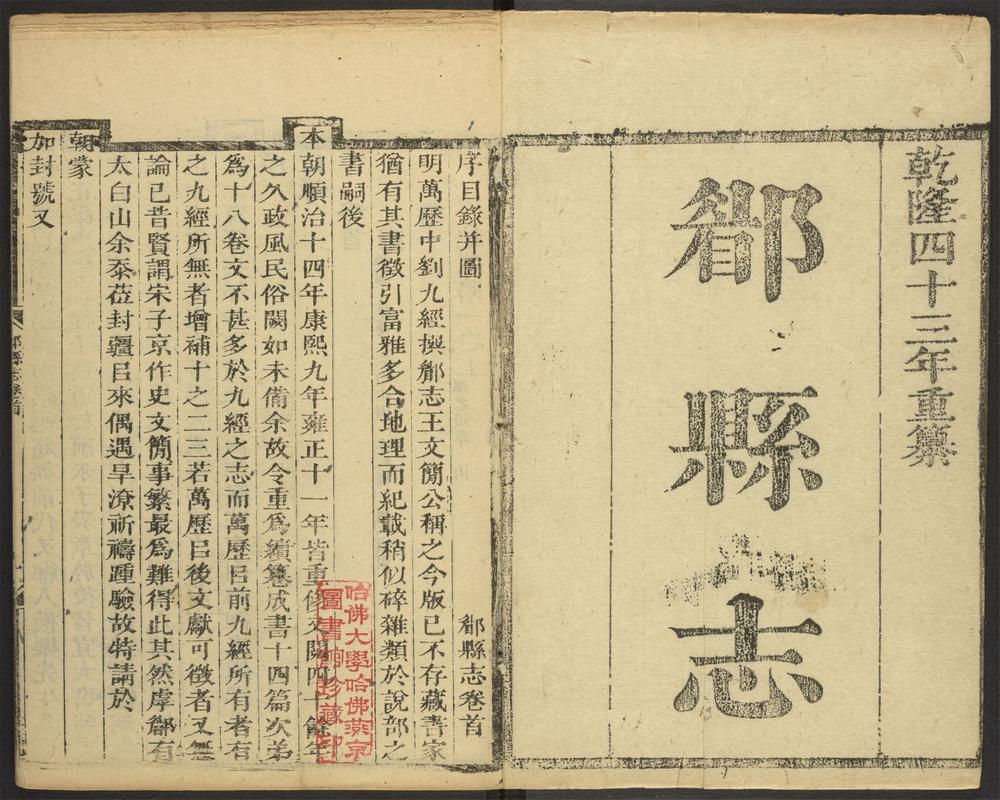 乾隆四十三年重纂
郿縣志
序目錄并圖 郿縣志卷首
明萬歷中劉九經撰郿志王文簡公稱之今版已不存藏書家
猶有其書徵引富雅多合地理而紀載稍似碎雜類於說部之
書嗣後
本朝順治十四年康熙九年雍正十一年皆重修又閱四十餘年
之久政風民俗闕如未備余故令重爲續纂成書十四篇次弟
爲十八卷文不甚多於九經之志而萬歷㠯前九經所有者有
之九經所無者增補十之二三若萬歷㠯後文獻可徵者又無
論已昔賢謂宋子京作史文簡事繁最爲難得此其然虖郿有
太白山余忝莅封疆㠯來偶遇旱潦祈禱踵驗故特請於
朝蒙
加封號又
郿縣志卷首
哈佛大學哈佛燕京
圖書館珍藏印